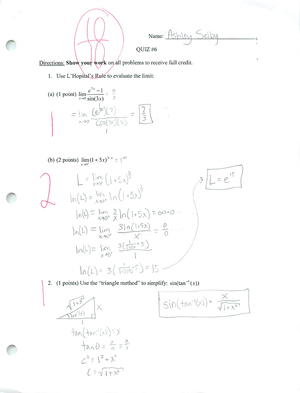 10
10
Name: Ashley Selby
QUIZ #6
Directions: Show your work on all problems to receive full credit.
1. Use L'Hopital's Rule to evaluate the limit:
(a) (1 point) lim x→0 (e^2x − 1)/sin(3x) = 0/0
1
= lim x→0 (e^2x)(2)/(cos(3x)(3)) = 2/3
(b) (2 points) lim x→0 (1 + 5x)^3/x = 1^∞
2
L = lim x→0 (1+5x)^3/x
ln(L) = lim x→0 ln(1+5x)^3/x
ln(L) = lim x→0 3/x ln(1+5x) = ∞·0
ln(L) = lim x→0 3ln(1+5x)/x = 0/0
ln(L) = lim x→0 3(1/(1+5x)·5)/1
ln(L) = 3( ) = 15
L = e^15
1
2. (1 points) Use the "triangle method" to simplify: sin(tan⁻¹(x))
sin(tan⁻¹(x)) = x/√(1+x²)
√1+x²
x
1
tan(tan⁻¹(x)) = x
tanθ = x/1
c² = 1² + x²
c = √1+x²